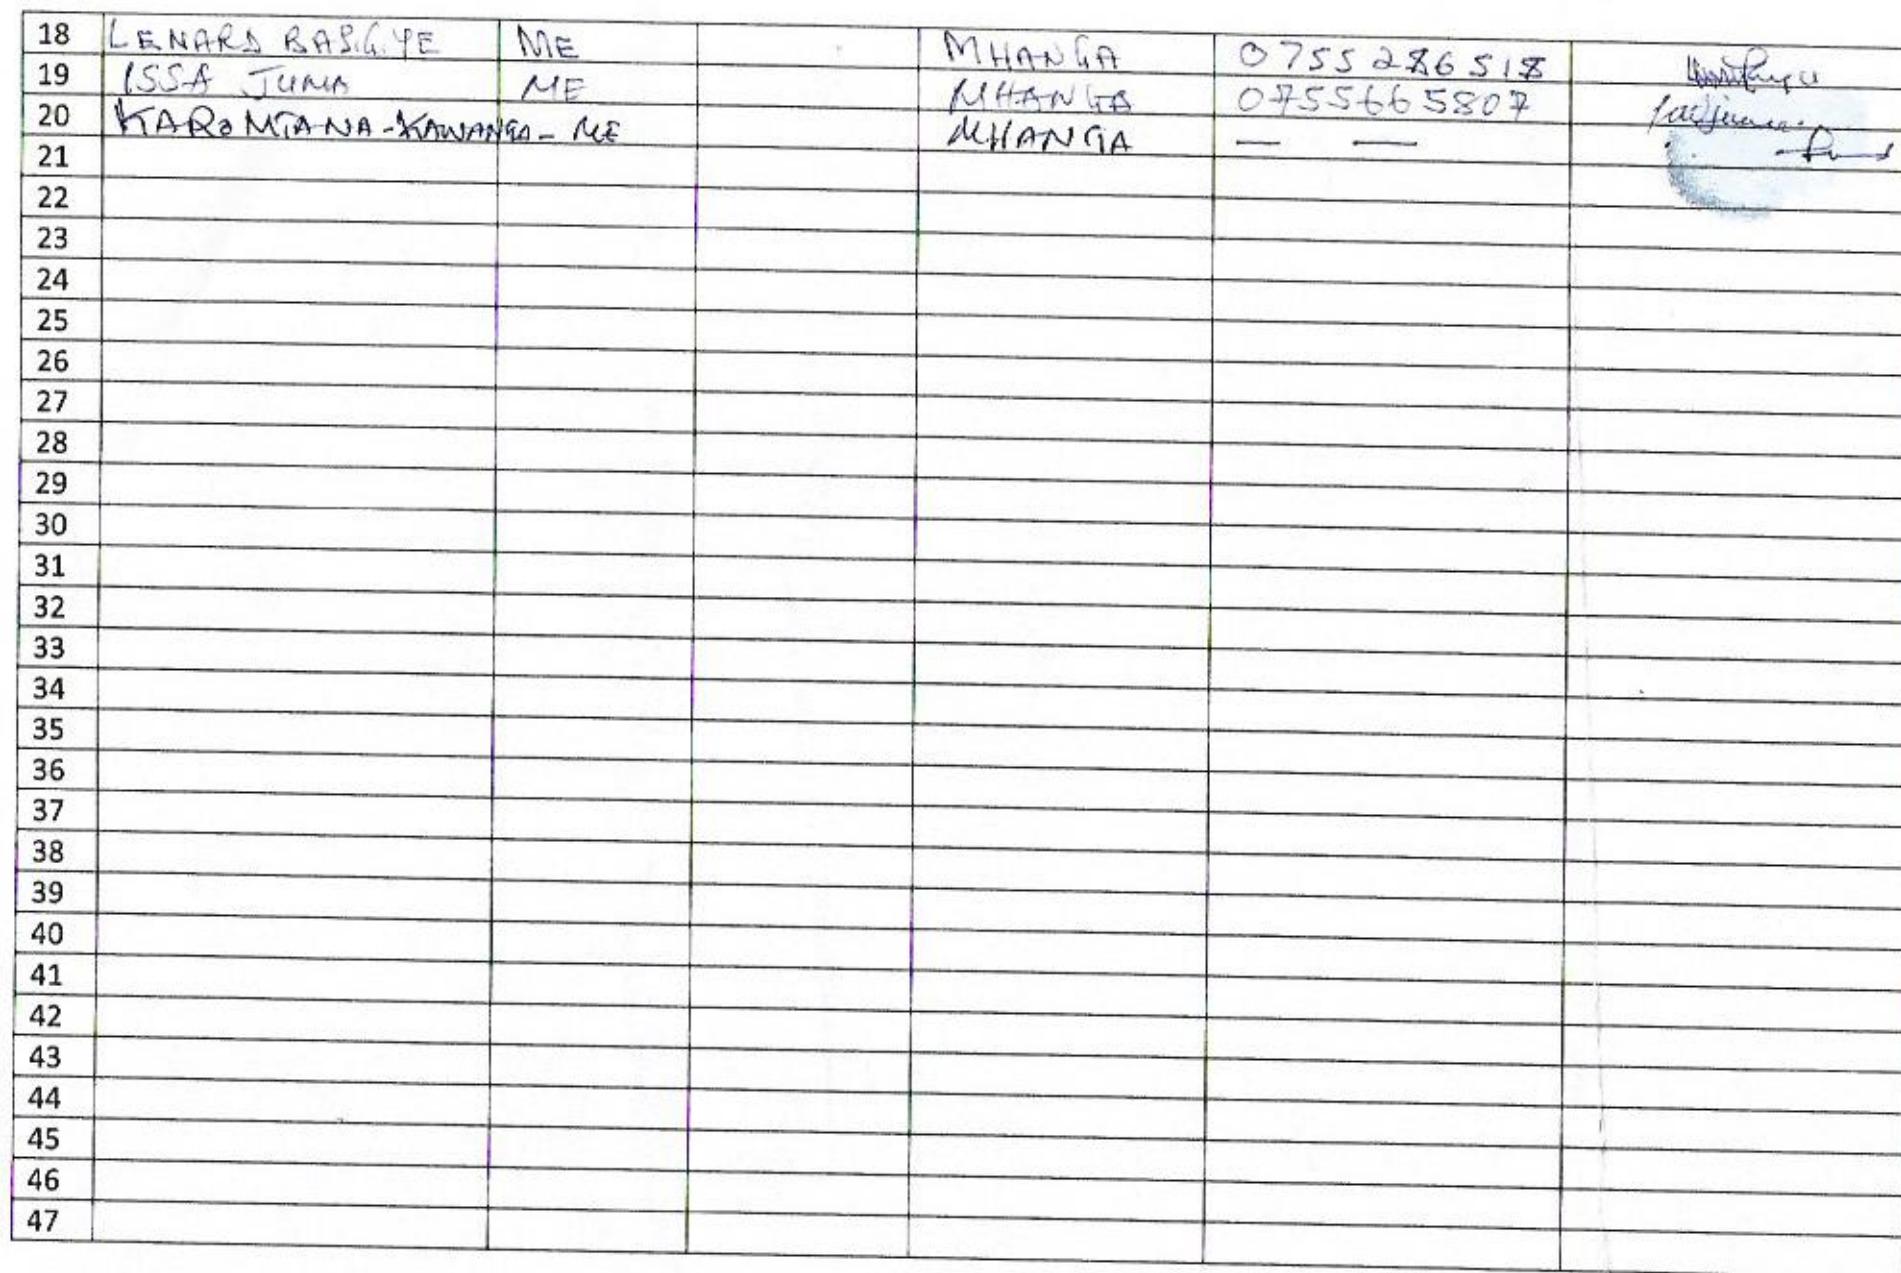 18 LENARD BASIGIYE ME MHANGA 0755286518
19 ISSA JUMA ME MHANGA 0755665807
20 KAROMTANA-KAWANGA- ME MHANGA — —
21
22
23
24
25
26
27
28
29
30
31
32
33
34
35
36
37
38
39
40
41
42
43
44
45
46
47